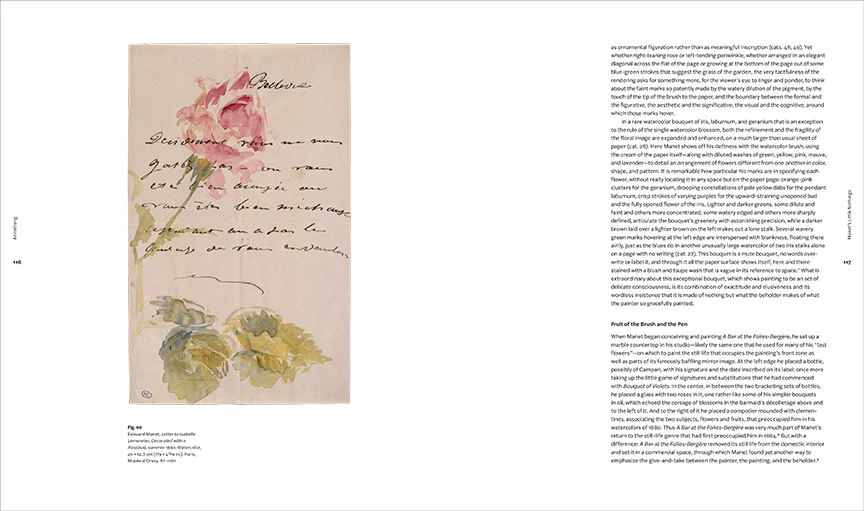 Armstrong
116
Bellevue
Décidément vous ne vous
gâtez pas
ou vous
êtes bien occupée ou
vous êtes bien méchante
cependant on a pas le
courage de vous en vouloir
Fig. 60
Edouard Manet, Letter to Isabelle
Lemonnier, Decorated with a
summer 1880. Watercolor,
Paris,
Musée d'Orsay, RF 11180
as ornamental figuration rather than as meaningful inscription (cats. 48, 49). Yet
whether right-leaning rose or left-tending periwinkle, whether arranged in an elegant
diagonal across the flat of the page or growing at the bottom of the page out of some
blue-green strokes that suggest the grass of the garden, the very tactfulness of the
rendering asks for something more, for the viewer's eye to linger and ponder, to think
about the faint marks so patently made by the watery dilution of the pigment, by the
touch of the tip of the brush to the paper, and the boundary between the formal and
the figurative, the aesthetic and the significative, the visual and the cognitive, around
which those marks hover.
In a rare watercolor bouquet of iris, laburnum, and geranium that is an exception
to the rule of the single watercolor blossom, both the refinement and the fragility of
the floral image are expanded and enhanced, on a much larger than usual sheet of
paper (cat. 28). Here Manet shows off his deftness with the watercolor brush, using
the cream of the paper itself—along with diluted washes of green, yellow, pink, mauve,
and lavender—to detail an arrangement of flowers different from one another in color,
shape, and pattern. It is remarkable how particular his marks are in specifying each
flower, without really locating it in any space but on the paper page: orange-pink
clusters for the geranium, drooping constellations of pale yellow dabs for the pendant
laburnum, crisp strokes of varying purples for the upward-straining unopened bud
and the fully opened flower of the iris. Lighter and darker greens, some dilute and
faint and others more concentrated, some watery edged and others more sharply
defined, articulate the bouquet's greenery with astonishing precision, while a darker
brown laid over a lighter brown on the left makes out a lone stalk. Several wavery
green marks hovering at the left edge are interspersed with blankness, floating there
airily, just as the blues do in another unusually large watercolor of two iris stalks alone
on a page with no writing (cat. 27). This bouquet is a mute bouquet, no words over-
write or label it, and through it all the paper surface shows itself, here and there
stained with a blush and taupe wash that is vague in its reference to space.⁷ What is
extraordinary about this exceptional bouquet, which shows painting to be an act of
delicate consciousness, is its combination of exactitude and elusiveness and its
wordless insistence that it is made of nothing but what the beholder makes of what
the painter so gracefully painted.
Fruit of the Brush and the Pen
When Manet began conceiving and painting A Bar at the Folies-Bergère, he set up a
marble countertop in his studio—likely the same one that he used for many of his "last
flowers"—on which to paint the still life that occupies the painting's front zone as
well as parts of its famously baffling mirror image. At the left edge he placed a bottle,
possibly of Campari, with his signature and the date inscribed on its label, once more
taking up the little game of signatures and substitutions that he had commenced
with Bouquet of Violets. In the center, in between the two bracketing sets of bottles,
he placed a glass with two roses in it, one rather like some of his simpler bouquets
in oil, which echoed the corsage of blossoms in the barmaid's décolletage above and
to the left of it. And to the right of it he placed a compotier mounded with clemen-
tines, associating the two subjects, flowers and fruits, that preoccupied him in his
watercolors of 1880. Thus A Bar at the Folies-Bergère was very much part of Manet's
return to the still-life genre that had first preoccupied him in 1864.⁸ But with a
difference: A Bar at the Folies-Bergère removed its still life from the domestic interior
and set it in a commercial space, through which Manet found yet another way to
emphasize the give-and-take between the painter, the painting, and the beholder.⁹
Manet's Little Nothings
117